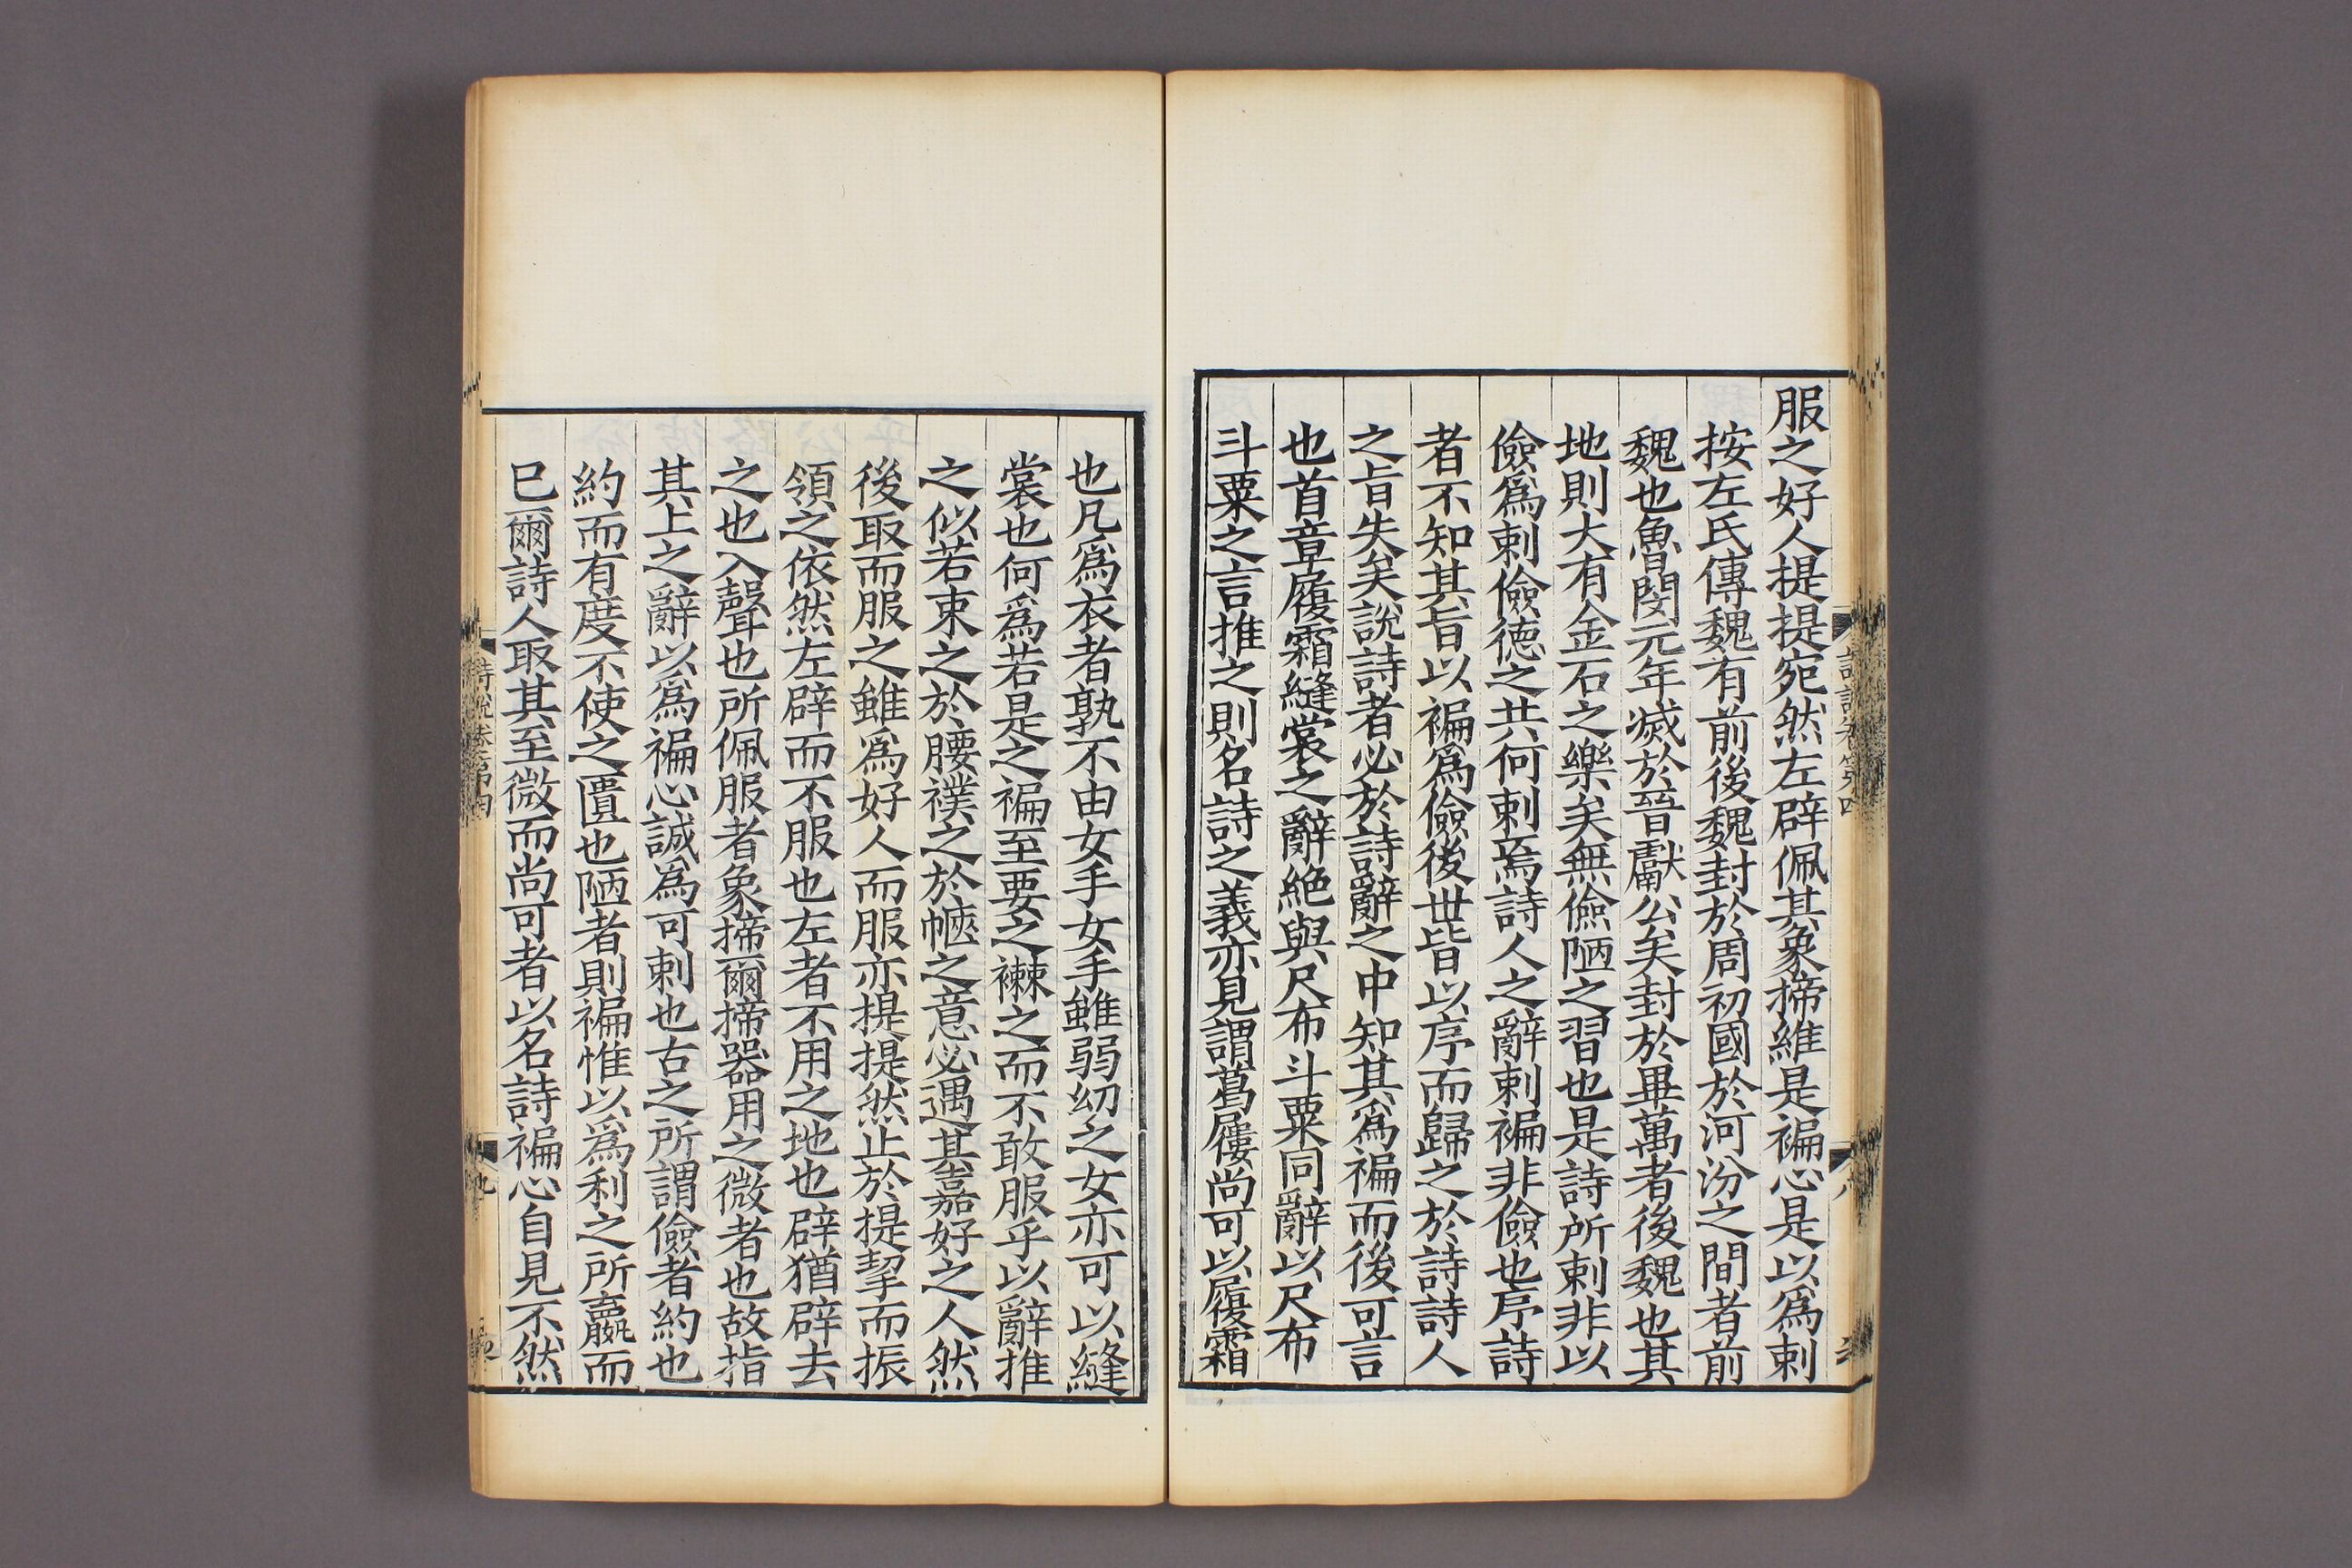 服之好人提提宛然左辟佩其象揥維是褊心是以爲刺
按左氏傳魏有前後魏封於周初國於河汾之間者前
魏也魯閔元年滅於晉獻公矣封於畢萬者後魏也其
地則大有金石之樂矣無儉陋之習也是詩所刺非以
儉爲刺儉德之共何刺焉詩人之辭刺褊非儉也序詩
者不知其旨以褊爲儉後世皆以序而歸之於詩詩人
之旨失矣說詩者必於詩辭之中知其爲褊而後可言
也首章履霜縫裳之辭絶與尺布斗粟同辭以尺布
斗粟之言推之則名詩之義亦見謂葛屨尚可以履霜
也凡爲衣者孰不由女手女手雖弱幼之女亦可以縫
裳也何爲若是之褊至要之襋之而不敢服乎以辭推
之似若束之於腰襆之於㡞之意必遇其嘉好之人然
後取而服之雖爲好人而服亦提提然止於提挈而振
領之依然左辟而不服也左者不用之地也辟猶辟去
之也入聲也所佩服者象揥爾揥器用之微者也故指
其上之辭以爲褊心誠爲可刺也古之所謂儉者約也
約而有度不使之匱也陋者則褊惟以爲利之所嬴而
已爾詩人取其至微而尚可者以名詩褊心自見不然
詩說卷第四
八
詩說卷第四
九